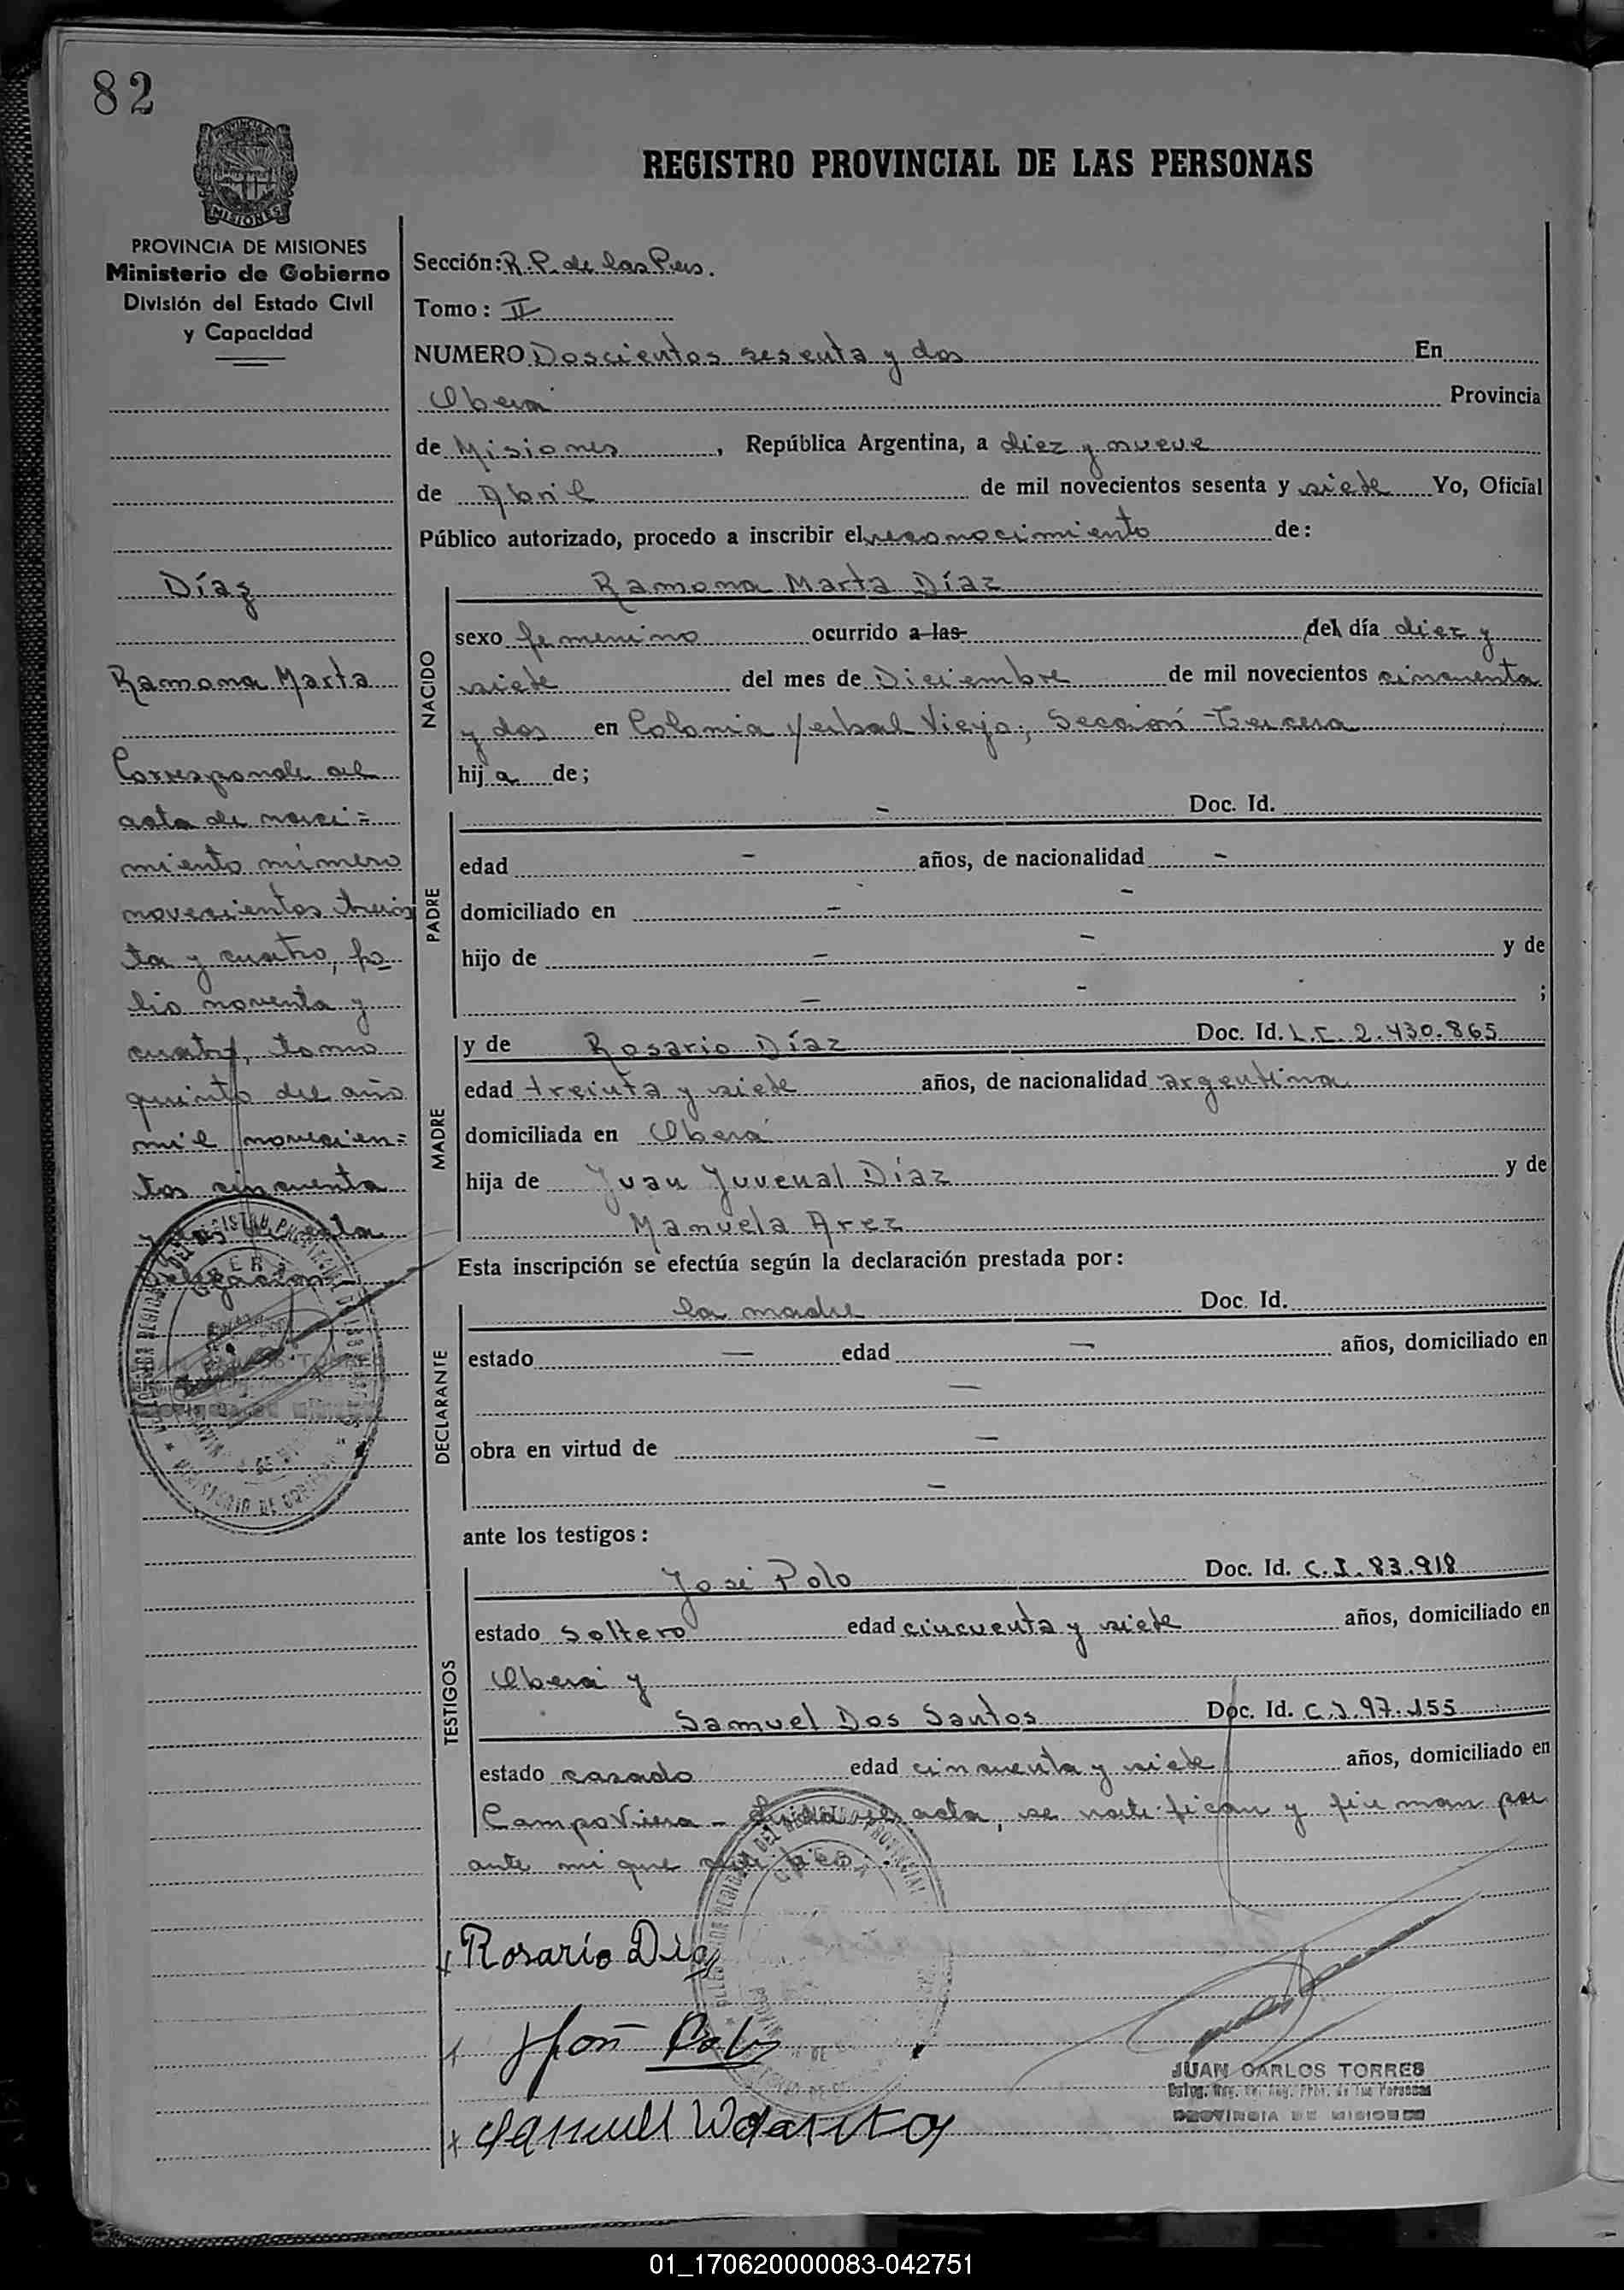 82
PROVINCIA DE
MISIONES
REGISTRO PROVINCIAL DE LAS PERSONAS
PROVINCIA DE MISIONES
Ministerio de Gobierno
División del Estado Civil
y Capacidad
Díaz
Ramona Marta
Corresponde al
acta de naci=
miento número
novecientos trein
ta y cuatro, fo
lio noventa y
cuatro, tomo
quinto del año
mil novecien=
tos cincuenta
y dos de esta
Delegación
Sección: R.P. de las Pers.
Tomo: II
NUMERO Doscientos sesenta y dos En
Oberá Provincia
de Misiones, República Argentina, a diez y nueve
de Abril de mil novecientos sesenta y siete Yo, Oficial
Público autorizado, procedo a inscribir el reconocimiento de:
NACIDO
Ramona Marta Díaz
sexo femenino ocurrido a las del día diez y
siete del mes de Diciembre de mil novecientos cincuenta
y dos en Colonia Yerbal Viejo, Sección Tercera
hij a de;
PADRE
- Doc. Id.
edad - años, de nacionalidad -
domiciliado en - -
hijo de - - y de
- - ;
MADRE
y de Rosario Díaz Doc. Id. L.C. 2.430.865
edad treinta y siete años, de nacionalidad argentina
domiciliada en Oberá
hija de Juan Juvenal Díaz y de
Manuela Arez
Esta inscripción se efectúa según la declaración prestada por:
DECLARANTE
la madre Doc. Id.
estado — edad — años, domiciliado en
—
obra en virtud de —
—
ante los testigos:
TESTIGOS
José Polo Doc. Id. C.I. 83.918
estado soltero edad cincuenta y siete años, domiciliado en
Oberá y
Samuel Dos Santos Doc. Id. C.I. 97.155
estado casado edad cincuenta y siete años, domiciliado en
Campo Viera - Leída el acta, se ratifican y firman por
ante mi que certifico.
x Rosario Díaz
José Polo
x Samuel
JUAN CARLOS TORRES
PROVINCIA DE MISIONES
01_170620000083-042751